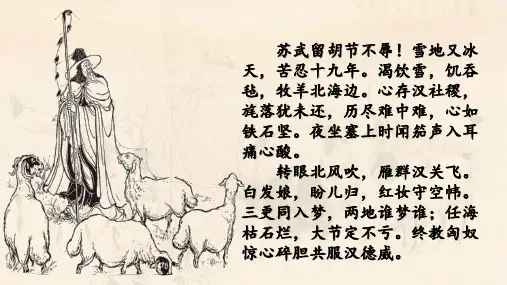 苏武留胡节不辱！雪地又冰
天，苦忍十九年。渴饮雪，饥吞
毡，牧羊北海边。心存汉社稷，
旄落犹未还，历尽难中难，心如
铁石坚。夜坐塞上时闻笳声入耳
痛心酸。
转眼北风吹，雁群汉关飞。
白发娘，盼儿归，红妆守空帏。
三更同入梦，两地谁梦谁；任海
枯石烂，大节定不亏。终教匈奴
惊心碎胆共服汉德威。